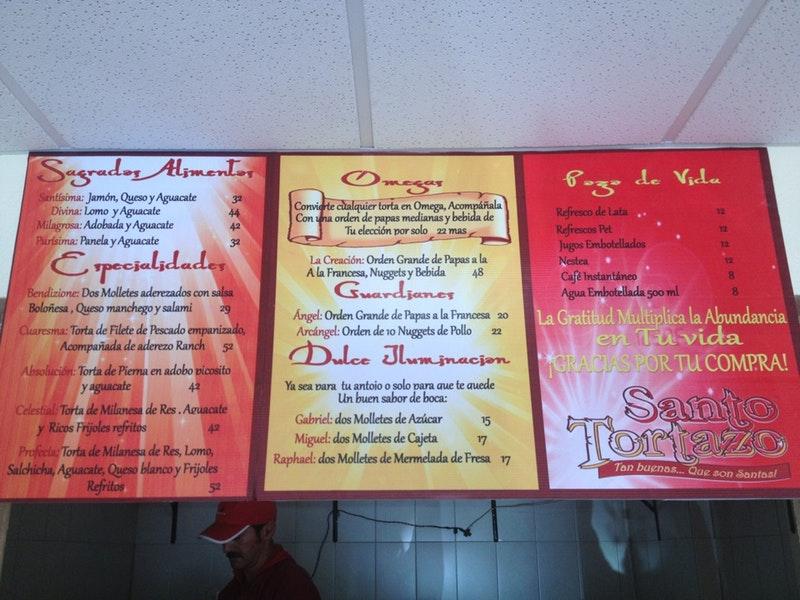 Sagrados Alimentos
Santísima: Jamón, Queso y Aguacate 32
Divina: Lomo y Aguacate 44
Milagrosa: Adobada y Aguacate 42
Purísima: Panela y Aguacate 32
Especialidades
Bendizione: Dos Molletes aderezados con salsa
Boloñesa , Queso manchego y salami 29
Cuaresma: Torta de Filete de Pescado empanizado,
Acompañada de aderezo Ranch 52
Absolución: Torta de Pierna en adobo picosito
y aguacate 42
Celestial: Torta de Milanesa de Res . Aguacate
y Ricos Frijoles refritos 42
Profecía: Torta de Milanesa de Res, Lomo,
Salchicha, Aguacate, Queso blanco y Frijoles
Refritos 52
Omegas
Convierte cualquier torta en Omega, Acompáñala
Con una orden de papas medianas y bebida de
Tu elección por solo 22 mas
La Creación: Orden Grande de Papas a la
A la Francesa, Nuggets y Bebida 48
Guardianes
Ángel: Orden Grande de Papas a la Francesa 20
Arcángel: Orden de 10 Nuggets de Pollo 22
Dulce Iluminación
Ya sea para tu antojo o solo para que te quede
Un buen sabor de boca:
Gabriel: dos Molletes de Azúcar 15
Miguel: dos Molletes de Cajeta 17
Raphael: dos Molletes de Mermelada de Fresa 17
Pozo de Vida
Refresco de Lata 12
Refrescos Pet 12
Jugos Embotellados 12
Nestea 12
Café Instantáneo 8
Agua Embotellada 500 ml 8
La Gratitud Multiplica la Abundancia
en Tu vida
¡GRACIAS POR TU COMPRA!
Santo
Tortazo
Tan buenas... Que son Santas!